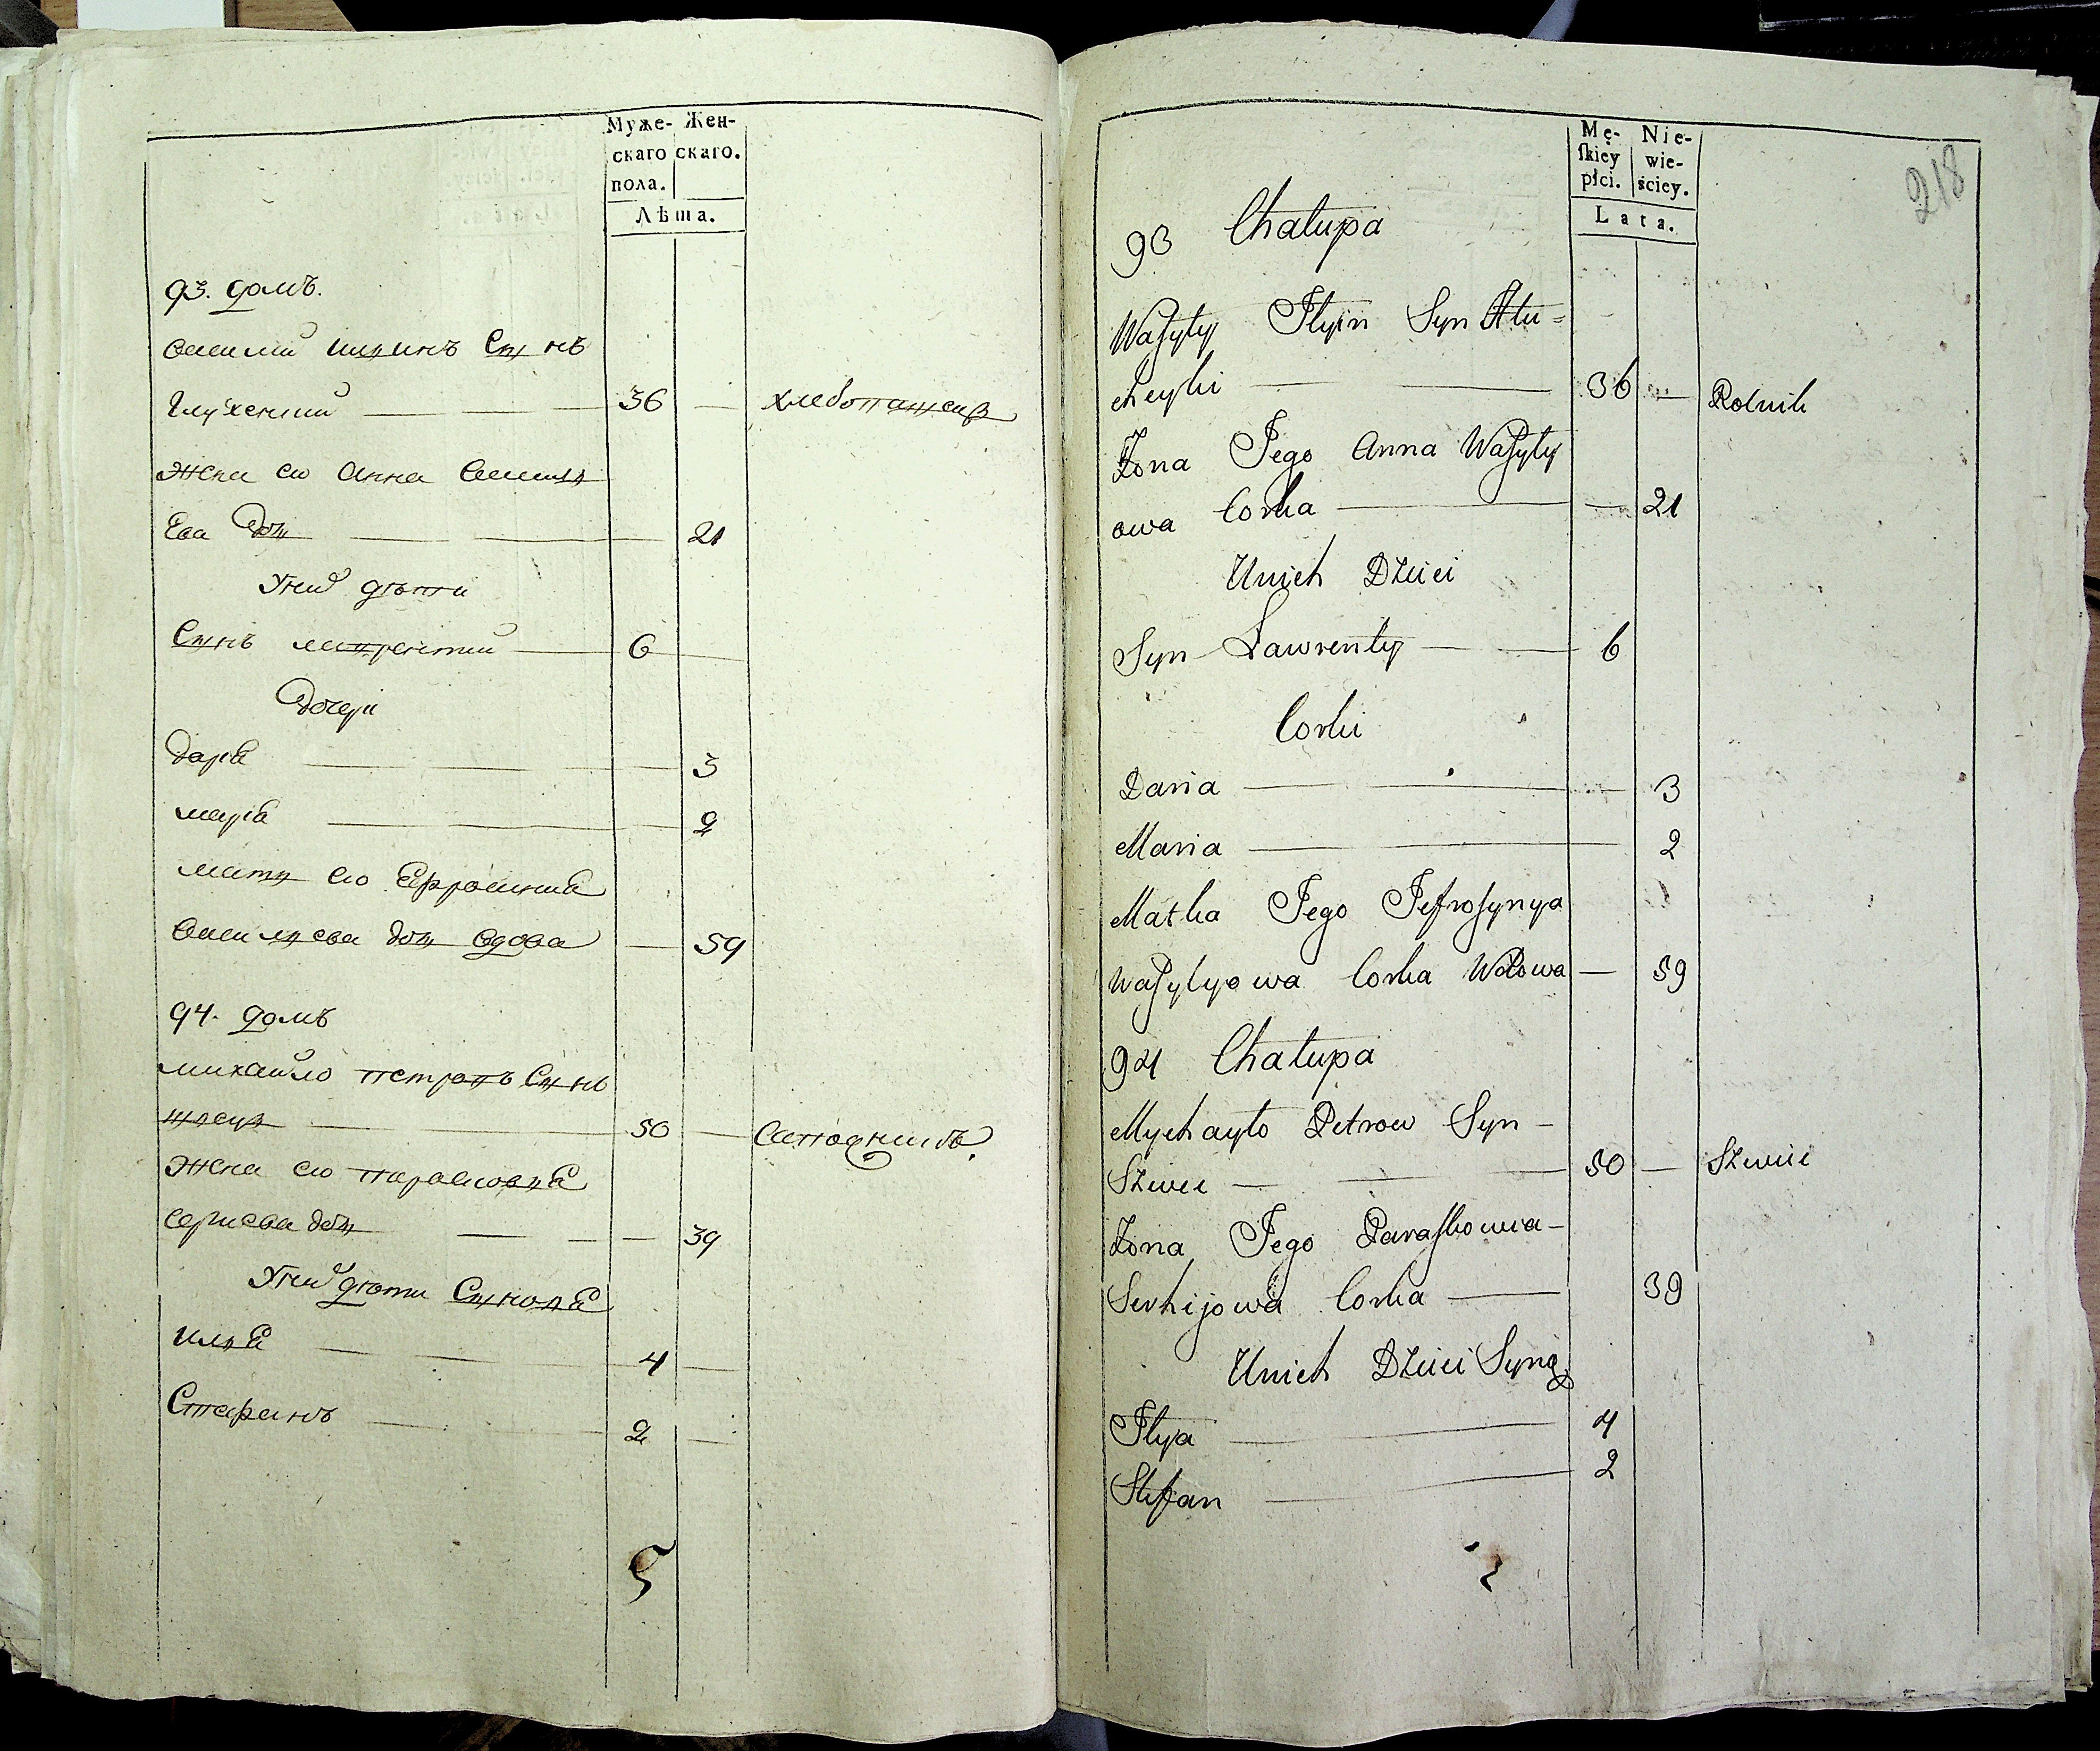 Муже- Жен-
скаго скаго.
пола.
Лѣта.
93. домъ.
Василий Ильинъ Сынъ
Глухенкий 36 — хлебопашецъ
Жена ево Анна Василь
ева Дочь 21
У них дѣти
Сынъ лаврентий 6
Дочери
Дарья 3
марья 2
мать ево Ефросинья
Васильева дочь вдова — 59
94. домъ
михайло петровъ Сынъ
швецъ 50 — Сапожникъ.
Жена ево парасковья
Сергиева дочь — 39
У них дѣти Сыновья
Илья 4 —
Стефанъ 2 —
Mę- Nie-
ſkiey wie-
płci. ściey.
Lata.
218
93 Chałupa
Waſyly Ilyin Syn Hłu=
cheyki 36 — Rolnik
Żona Jego Anna Waſyly
owa Corka — 21
Unich Dzieci
Syn Lawrenty 6
Corki
Daria — 3
Maria 2
Matka Jego Jefroſynya
Waſylyowa Corka Wdowa — 59
94 Chałupa
Mychayło Petrow Syn —
Szwec — 50 — Szwiec
Żona Jego Paraſkowia —
Serhijowa Corka 39
Unich Dzieci Syny
Ilya 4
Stefan 2